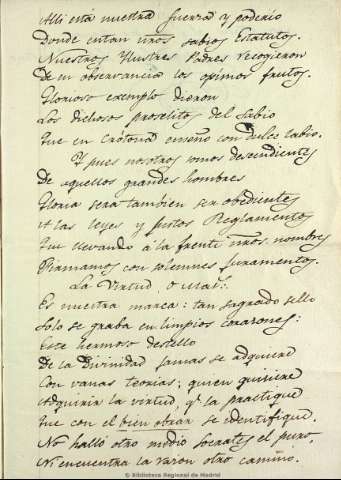 Alli está nuestra fuerza y poderio
Donde estan nros. sabios Estatutos.
Nuestros Ylustres Padres recogieron
De su observancia los opimos frutos.
Glorioso exemplo dieron
Los dichosos proselitos del Sabio
Que en Crótona enseñó con dulce labio.
Y pues nosotros somos descendientes
De aquellos grandes hombres
Gloria será tambien ser obedientes
A las leyes y justos Reglamentos
Que llevando á la frente nros. nombres
Firmamos con solemnes juramentos.
La Virtud, o mas:.
Es nuestra marca: tan sagrado sello
Solo se graba en limpios corazones:
Este hermoso destello
De la Divinidad jamas se adquiere
Con vanas teorias; quien quisiere
Adquirir la virtud, qe. la practique
Que con el bien obrar se identifique,
No halló otro medio Socrates el puro,
Ni encuentra la razon otro camino.
© Biblioteca Regional de Madrid